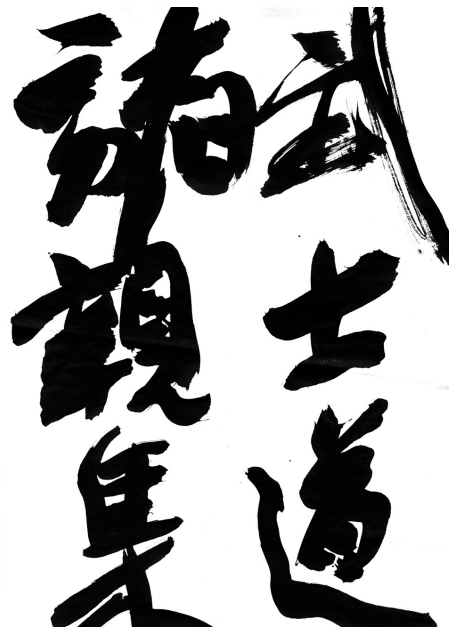 武士道
諸観集